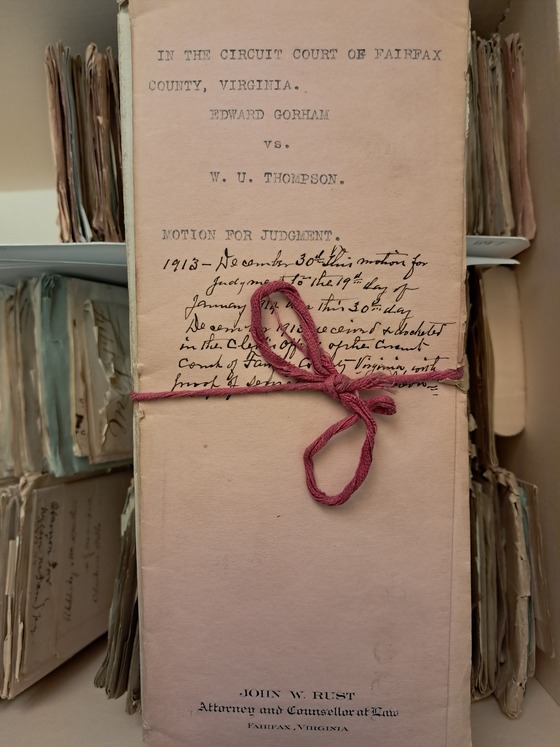 IN THE CIRCUIT COURT OF FAIRFAX
COUNTY, VIRGINIA.
EDWARD GORHAM
vs.
W. U. THOMPSON.
MOTION FOR JUDGMENT.
1913 - December 30th this motion for
judgment to the 19th day of
January this 30th day
December 1913 received & docketed
in the Clerk's Office of the Circuit
Court of County Virginia with
proof of
JOHN W. RUST
Attorney and Counsellor at Law
FAIRFAX, VIRGINIA